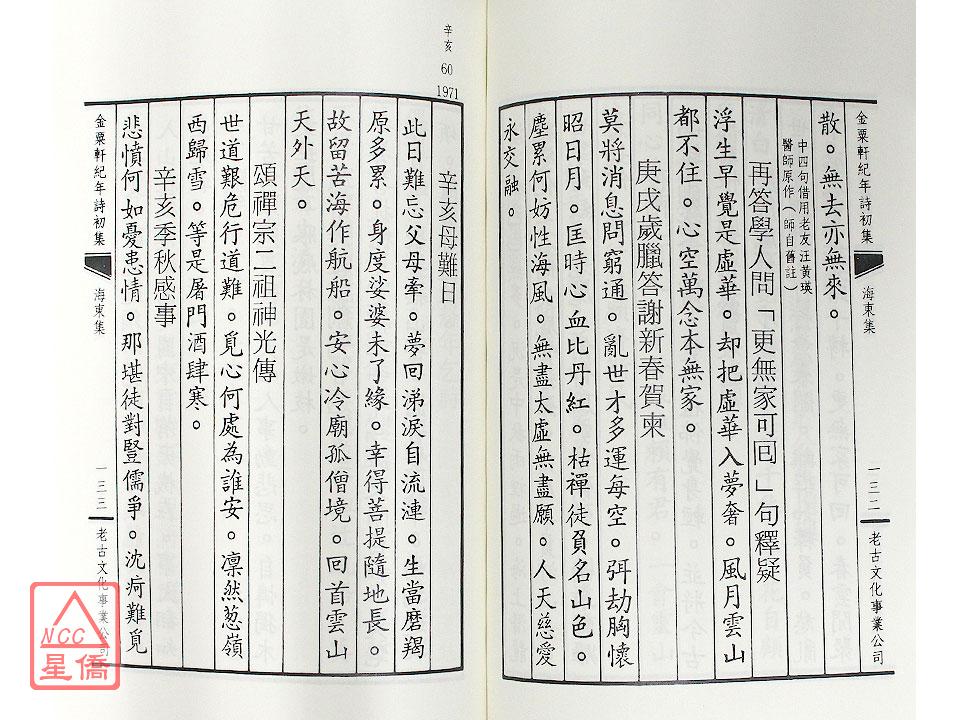 金粟軒紀年詩初集
海東集
一三二
老古文化事業公司
散。無去亦無來。
中四句借用老友汪黃瑛
醫師原作（師自舊註）
再答學人問「更無家可回」句釋疑
浮生早覺是虛華。却把虛華入夢奢。風月雲山
都不住。心空萬念本無家。
庚戌歲臘答謝新春賀柬
莫將消息問窮通。亂世才多運每空。弭劫胸懷
昭日月。匡時心血比丹紅。枯禪徒負名山色。
塵累何妨性海風。無盡太虛無盡願。人天慈愛
永交融。
辛亥
60
1971
辛亥母難日
此日難忘父母牽。夢回涕淚自流連。生當磨羯
原多累。身度娑婆未了緣。幸得菩提隨地長。
故留苦海作航船。安心冷廟孤僧境。回首雲山
天外天。
頌禪宗二祖神光傳
世道艱危行道難。覓心何處為誰安。凜然葱嶺
西歸雪。等是屠門酒肆寒。
辛亥季秋感事
悲憤何如憂患情。那堪徒對豎儒爭。沈疴難覓
金粟軒紀年詩初集
海東集
一三三
老古文化事業公司
NCC
星僑